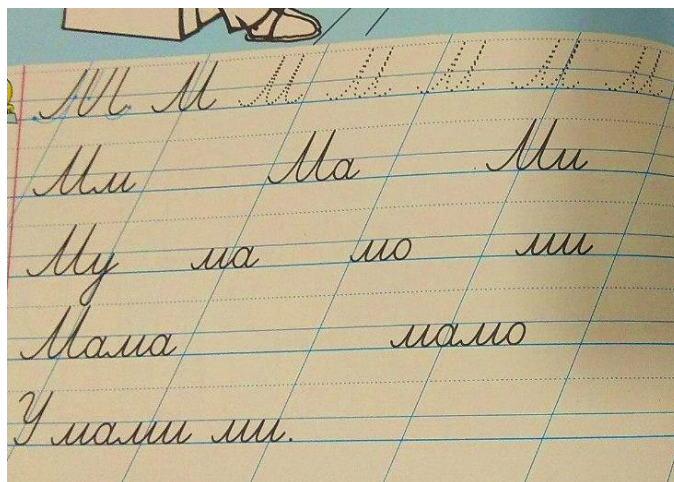 М М М М М М М
Мм Ма Ми
Му ма мо ми
Мама мамо
У мами ми.